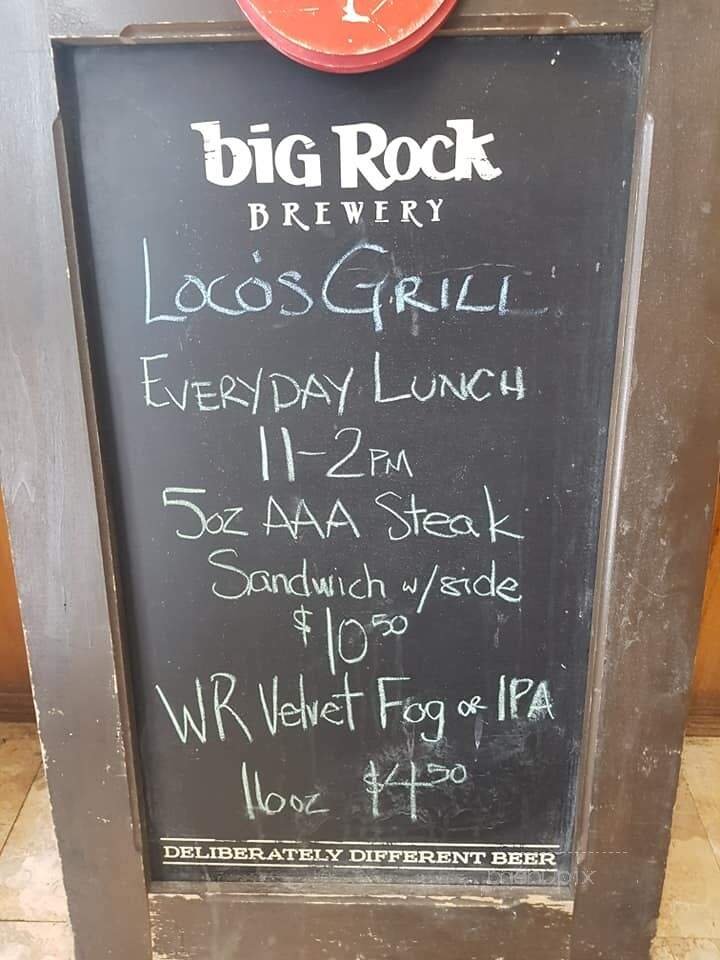 bIG Rock
BREWERY
LOCO'S GRILL
EVERYDAY LUNCH
11-2PM
5oz AAA Steak
Sandwich w/side
$10 50
WR Velvet Fog OR IPA
16oz $4 50
DELIBERATELY DIFFERENT BEER
menupix